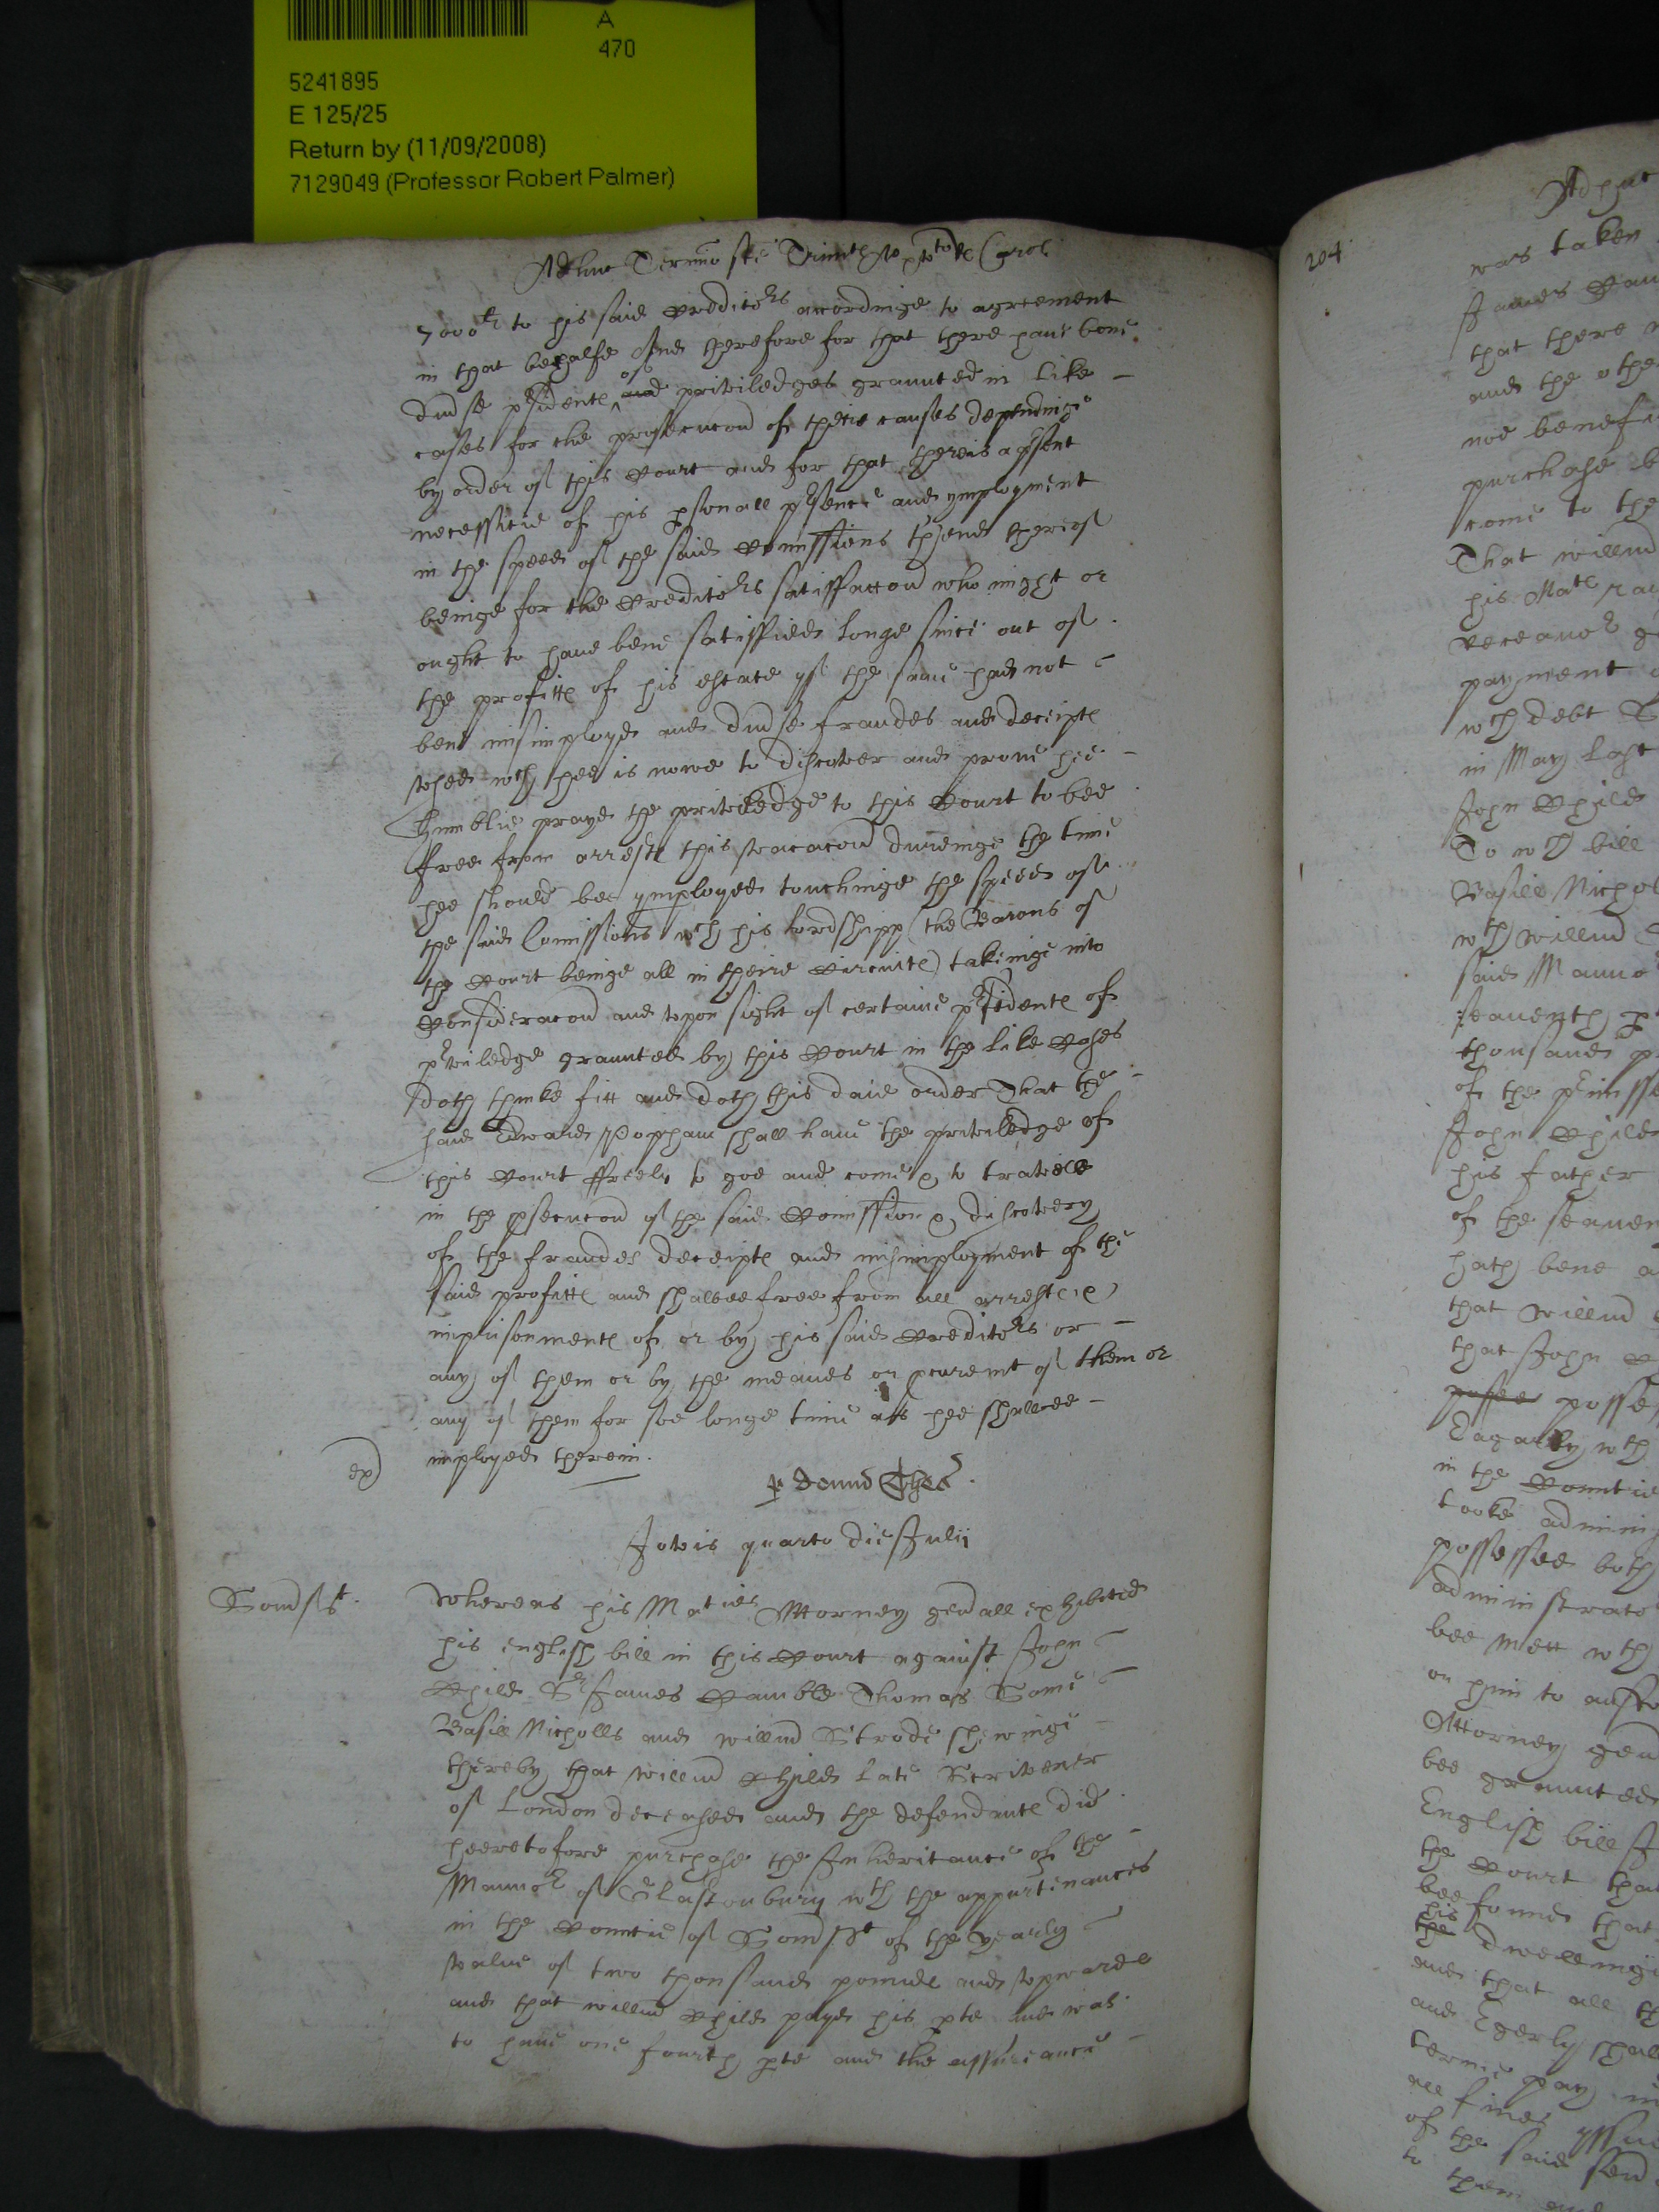 A
470
5241895
E 125/25
Return by (11/09/2008)
7129049 (Professor Robert Palmer)
Adhuc Termino sce Trinit Carol
7000li to his said Creditors accordinge to agreement
in that behalfe And therefore for that there have bene
divse psidente of and priviledges graunted in like
cases for the prosecucon of theire causes dependinge
by order of this Court and for that there is
necessitie of his psonall psence and ymployment
in the speed of the said Comissions thend thereof
beinge for the Creditors satisfaccon who might or
ought to have bene satisfied longe since out of
the profitte of his estate yf the same had not
bene misimployd and divse fraudes and deceipte
vsed wch hee is nowe to discover and prove hee
humblie prayd the priviledge to this Court to bee
free from arreste this vacacon dureinge the time
hee should bee ymployed touchinge the speed of
the said Comissions wch his Lordshipp (the Barons of
the Court beinge all in theire Circuite) takeinge into
Consideracon and vpon sight of certaine psidente of
pviledge graunted by this Court in the like Cases
doth thinke fitt and doth this daie order That the
said Edward Popham shall have the priviledge of
this Court ffreely to goe and come & to travell
in the psecucon of the said Comission & discovery
of the fraudes deceipte and misimployment of the
said profitte and shalbee free from all arreste &
imprisonmente of or by his said Creditors or
any of them or by the meanes or pcuremt of them or
any of them for soe longe time as hee shalbee
imployed therein.
ex
p Dennd Thes
Jovis quarto die Julij
Somsst.
Whereas his Maties Attorney genall exhibited
his english bill in this Court against John
Child Sr James Cambell Thomas Some
Basill Nicholls and willm Strode shewinge
thereby that willm Child late Scrivener
of London deceased and the defendante did
heeretofore purchase the Inheritance of the
Mannor of Glastonbury wth the appurtinances
in the Countie of Somsst of the yearly
value of two thousand pounde and vpwarde
and that willm Child payd his pte and was
to have one fourth pte and the assurance
204
Adhuc
was taken
James Cam
that there
and the othe
noe benefi
purchase b
come to the
That willm
his Mate
payment
wth debt
in May last
John Child
To wch bill
Basill Nichol
wth willm
said Manno
seaventh p
thousand p
of the pmisse
John Child
his father
of the seaven
hath bene a
that willm
that John
possed posse
in the Countie
tooke admin
possessed both
administrator
bee mett wth
on him to answ
Attorney gen
bee graunted
English bill
the Court that
bee found that
his
the dwellinge
and that all th
and Egerly shall
terme pay
all fines yssue
of the said
to them and